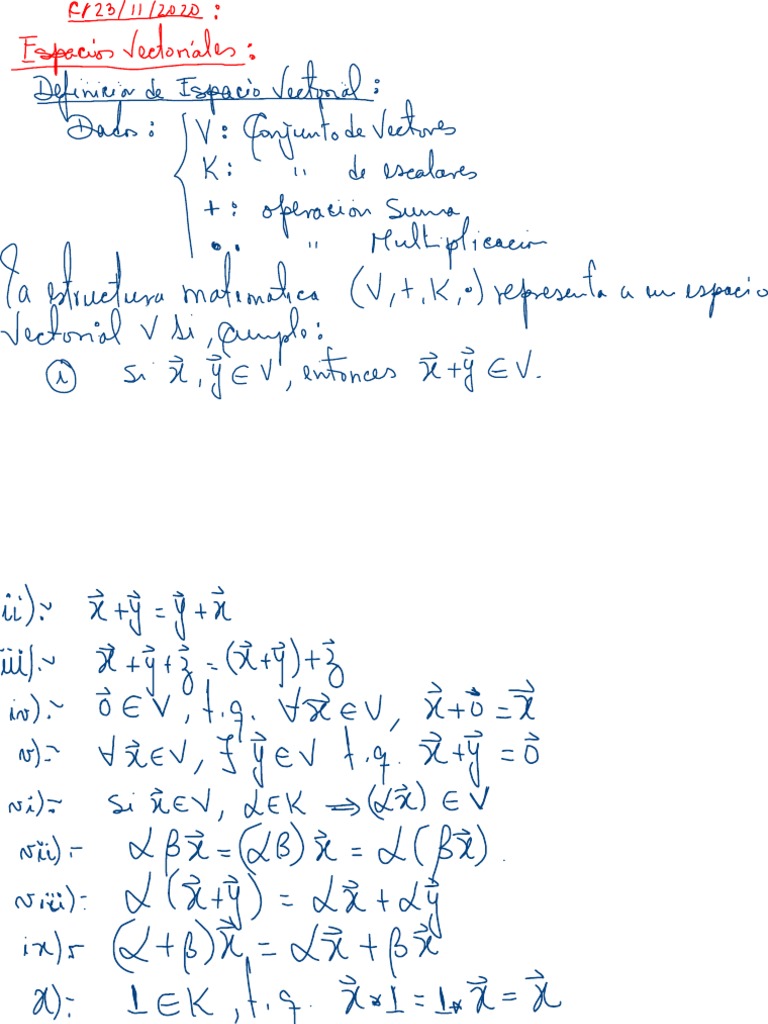 r/23/11/2020:
Espacios Vectoriales:
Definición de Espacio Vectorial:
Dados: { V: Conjunto de Vectores
K: " de escalares
+: operación Suma
•: " Multiplicación
La estructura matemática (V,+,K,•) representa a un espacio
Vectorial V si, cumple:
(i) Si x⃗, y⃗ ∈ V, entonces x⃗+y⃗ ∈ V.
ii):~ x⃗+y⃗ = y⃗+x⃗
iii):~ x⃗+y⃗+z⃗ = (x⃗+y⃗)+z⃗
iv):~ 0⃗ ∈ V, t.q. ∀x⃗ ∈ V, x⃗+0⃗ = x⃗
v):~ ∀x⃗∈V, ∃ y⃗∈V t.q. x⃗+y⃗ = 0⃗
vi):~ Si x⃗∈V, α∈K ⇒ (αx⃗) ∈ V
vii):- αβx⃗ = (αβ)x⃗ = α(βx⃗).
viii):- α(x⃗+y⃗) = αx⃗+αy⃗
ix):- (α+β)x⃗ = αx⃗+βx⃗
x):- 1∈K, t.q. x⃗*1 = 1*x⃗ = x⃗